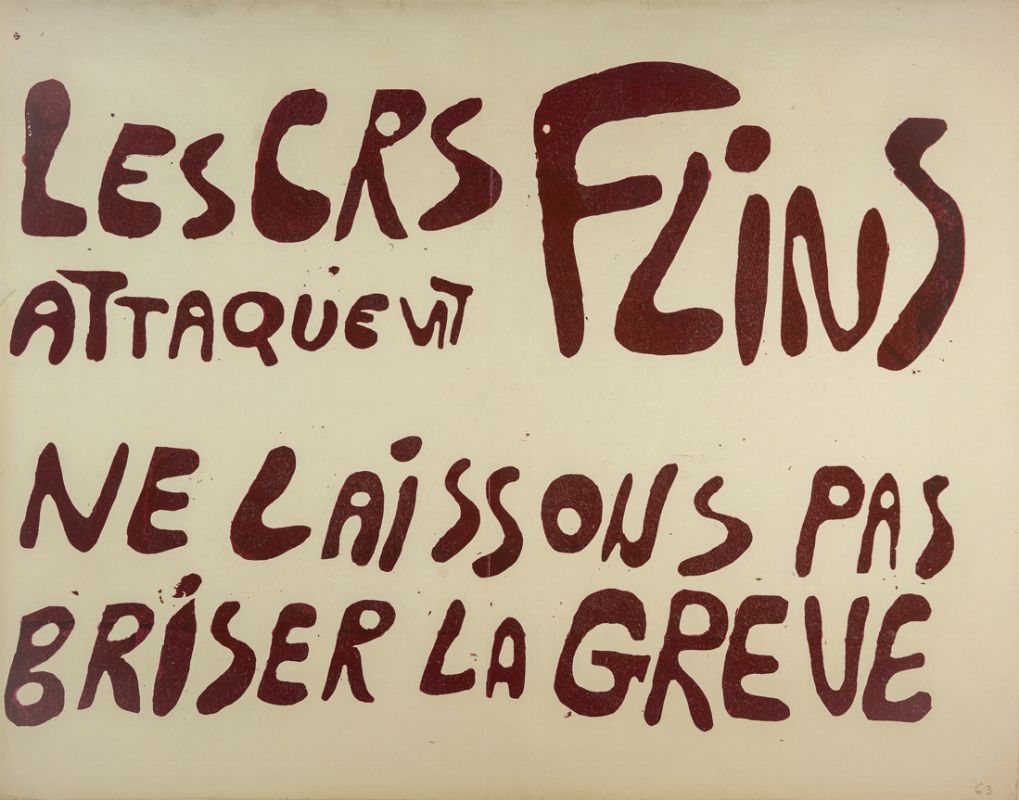 LES CRS
ATTAQUENT FLiNS
NE LAiSSONS PAS
BRiSER LA GREVE
63